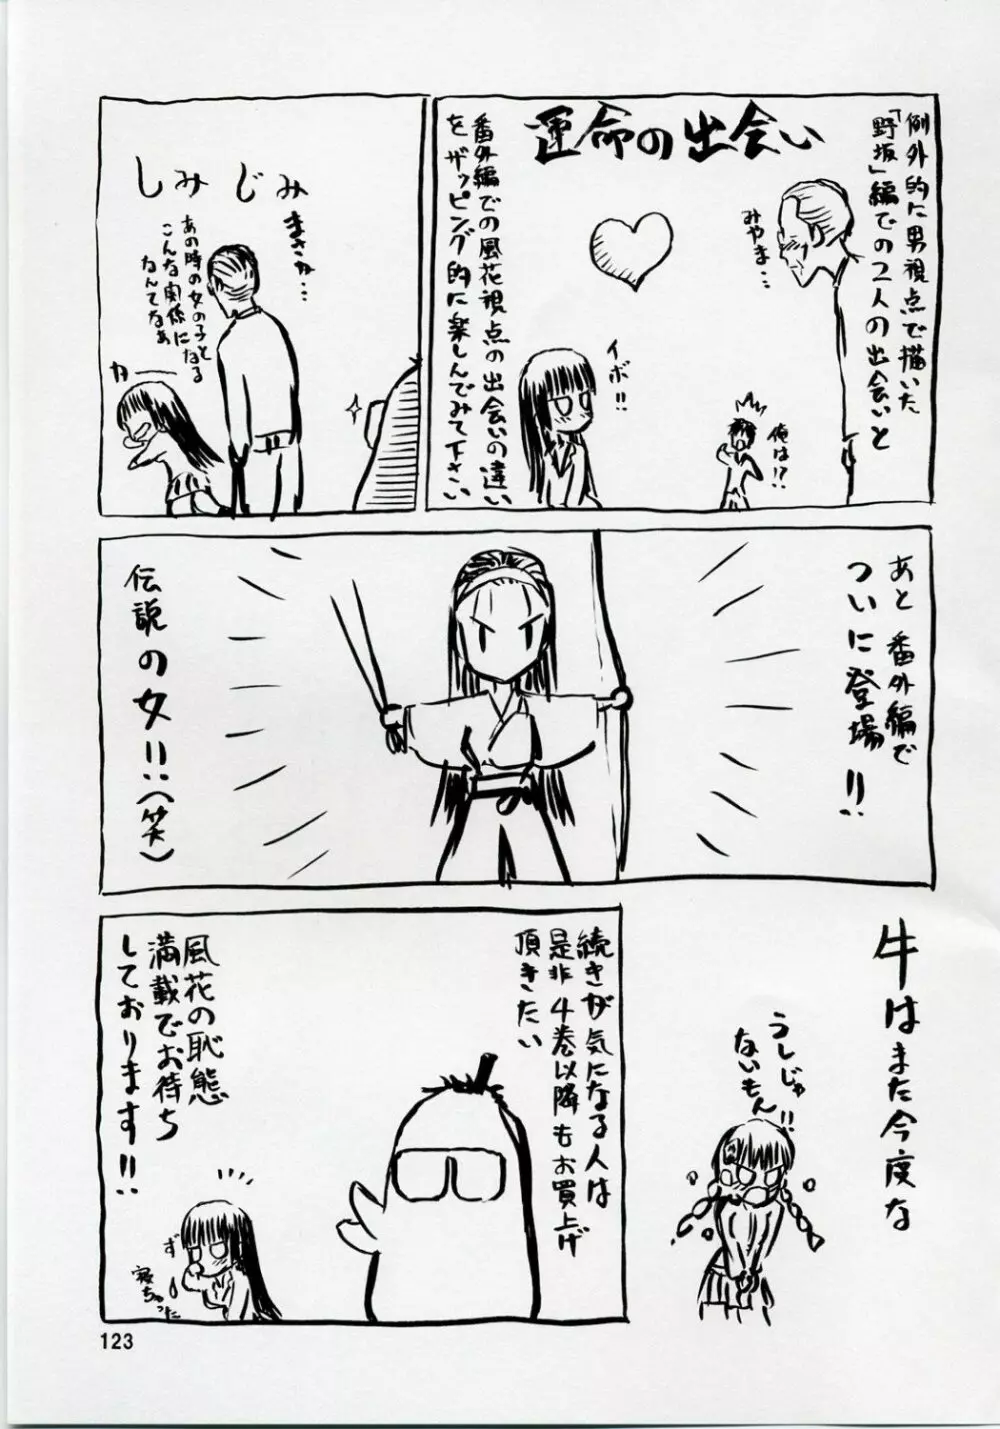 例外的に男視点で描いた
「野坂」編での2人の出会いと
運命の出会い
みやま…
俺は!?
イボ!!
番外編での風花視点の出会いの違い
をザッピング的に楽しんでみて下さい
しみじみ
まさか…
あの時の女の子と
こんな関係になる
なんてなぁ
カー
あと番外編で
ついに登場!!
伝説の女!!(笑)
牛はまた今度な
うしじゃ
ないもん!!
続きが気になる人は
是非4巻以降もお買上げ
頂きたい
風花の恥態
満載でお待ち
しております!!
ず
寝ちゃった
123